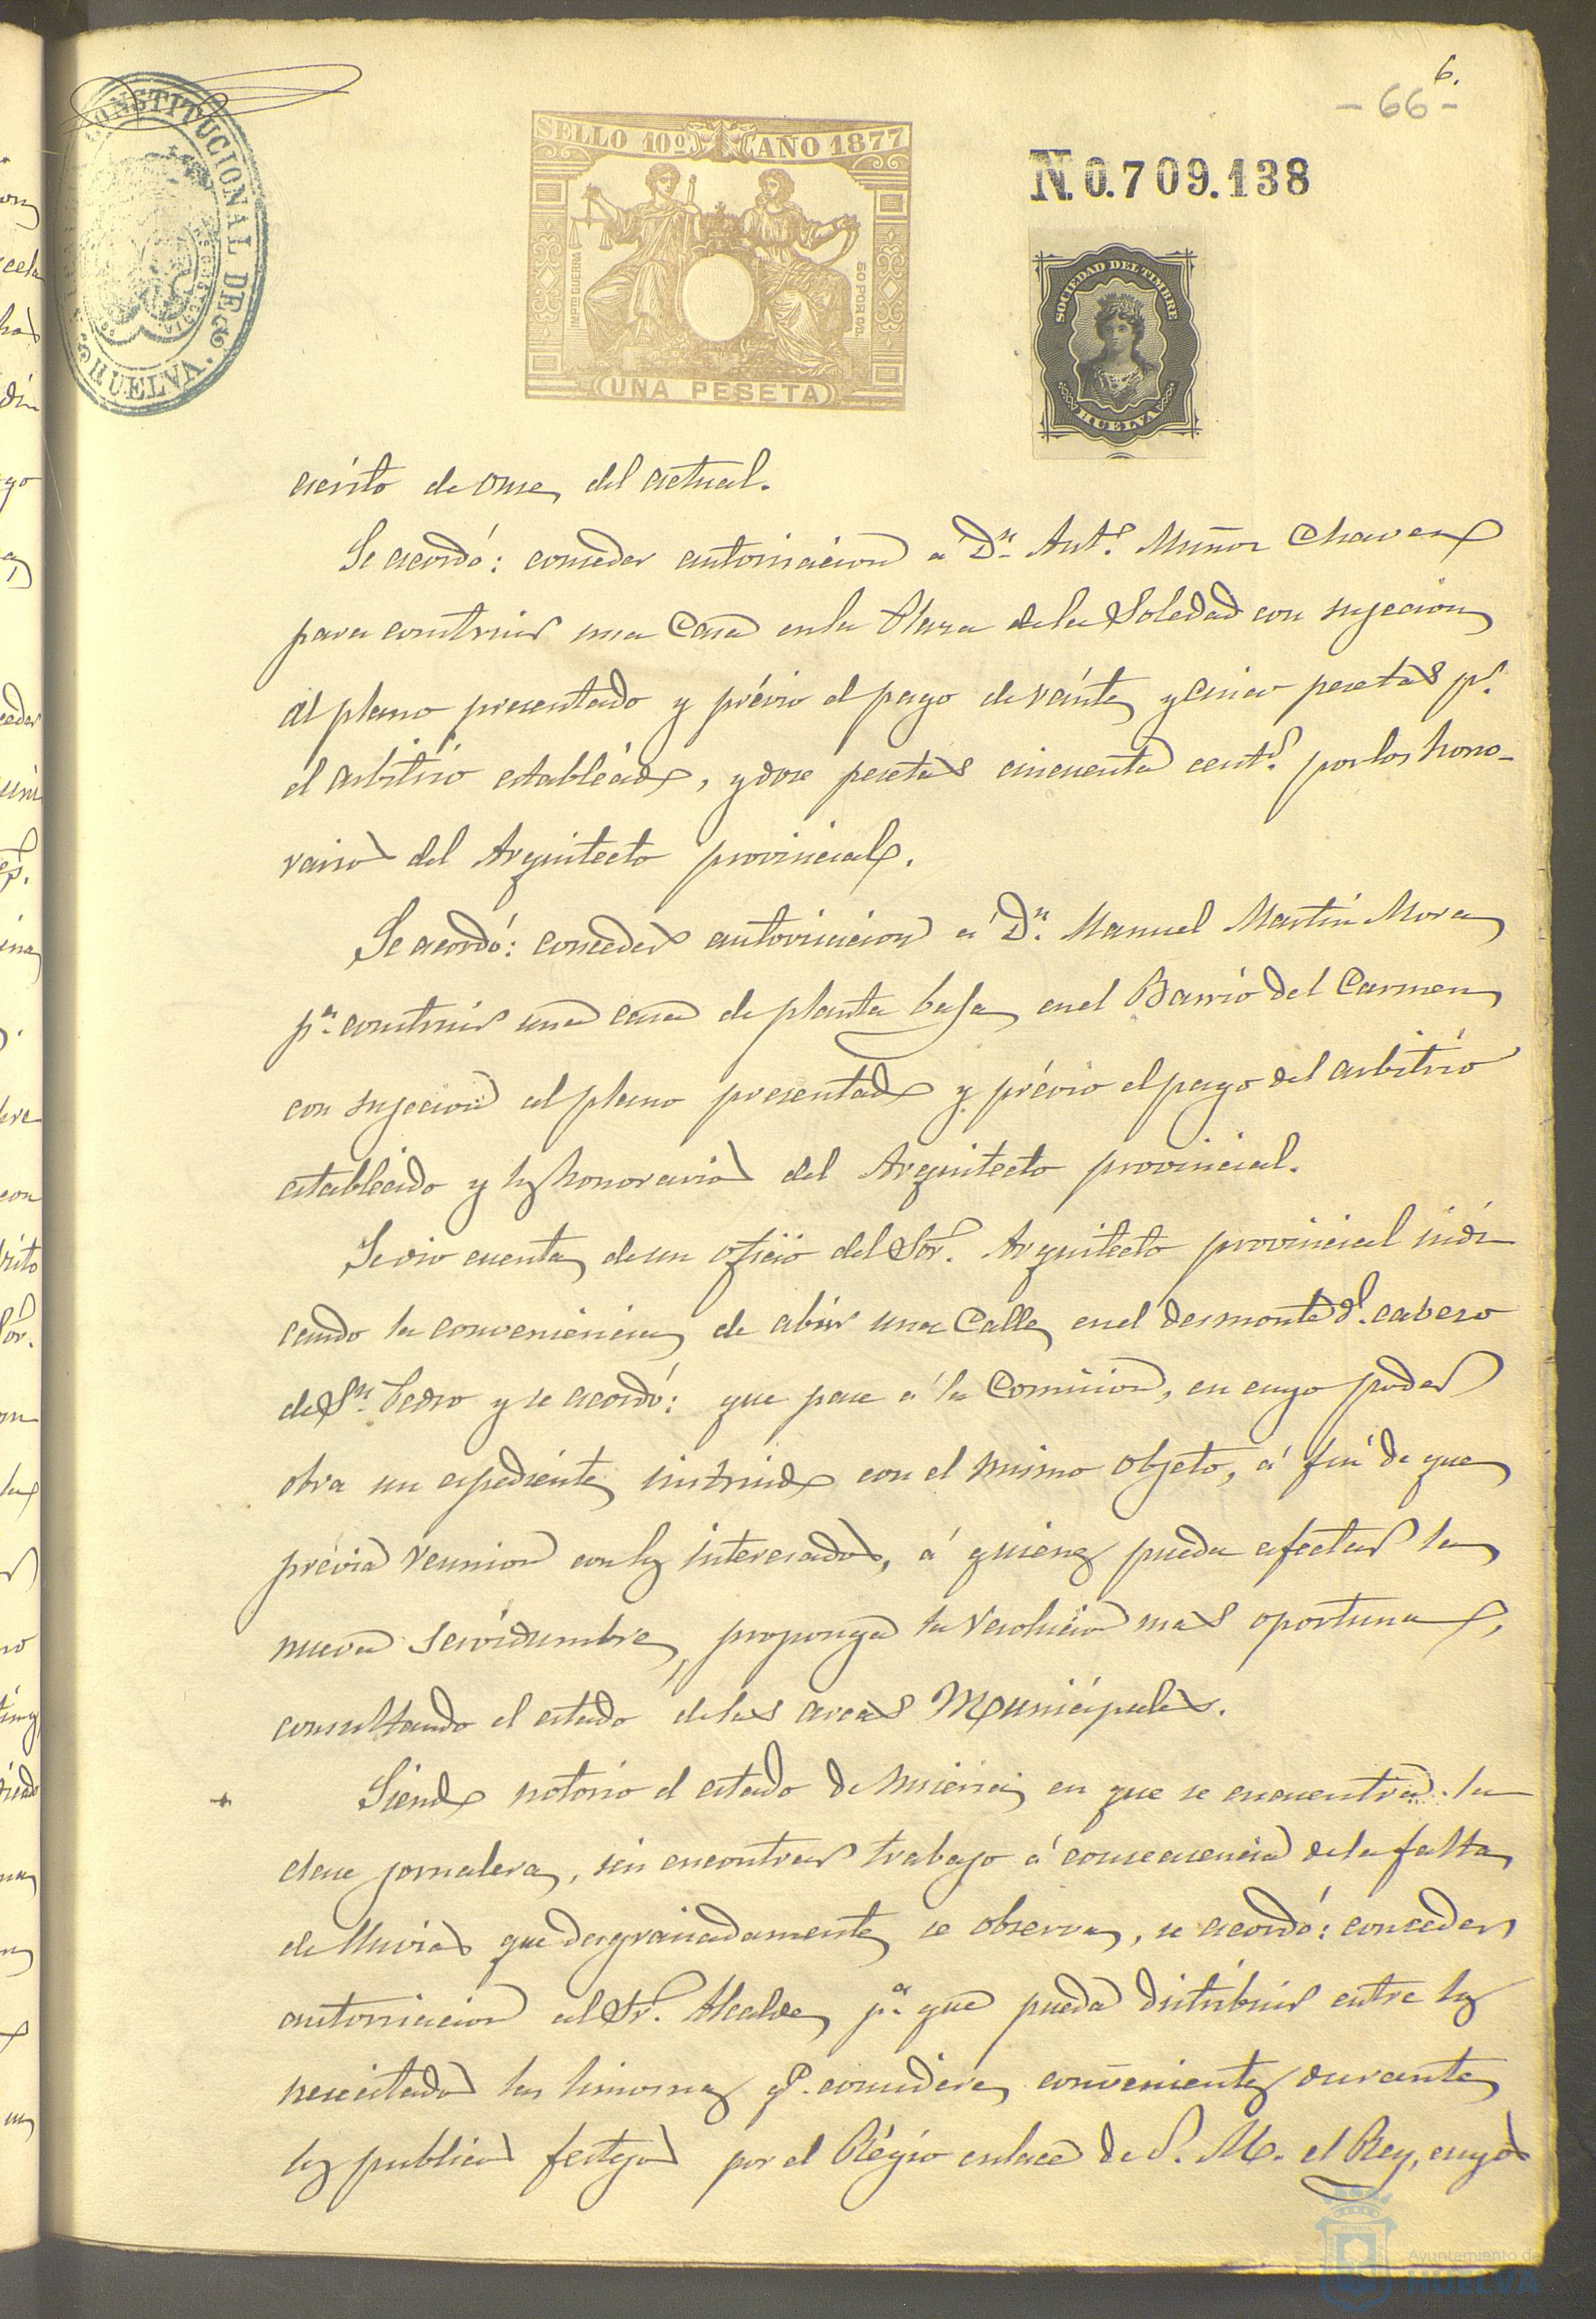 6.
- 66 -
CONSTITUCIONAL DE
HUELVA
SELLO 10º AÑO 1877
IMPTO GUERRA
50 POR 00.
UNA PESETA
N.0.709.138
SOCIEDAD DEL TIMBRE
HUELVA
escrito de once del actual.
Se acordó: conceder autorizacion á Dn. Anto. Muñoz Chavez
para construir una Casa en la Plaza de la Soledad con sujecion
al plano presentado y prévio el pago de veinte y cinco pesetas pr.
el arbitrio establecido, y doce pesetas cincuenta cents. por los hono-
rarios del Arquitecto provincial.
Se acordó: conceder autorizacion á Dn. Manuel Martin Mora
pa. construir una casa de planta baja en el Barrio del Carmen
con sujecion al plano presentado y prévio el pago del arbitrio
establecido y los honorarios del Arquitecto provincial.
Se dio cuenta de un oficio del Sor. Arquitecto provincial indi
cando la conveniencia de abrir una Calle en el desmonte dl. cabezo
de Sn. Pedro y se acordó: que pase á la Comision, en cuyo poder
obra un espediente instruido con el mismo objeto, á fin de que
prévia reunion con los interesados, á quienes pueda afectar la
nueva servidumbre, proponga la resolucion mas oportuna,
consultando el estado de las arcas Municipales.
Siendo notorio el estado de miseria en que se encuentra la
clase jornalera, sin encontrar trabajo á consecuencia de la falta
de lluvias que desgraciadamente se observa, se acordó: conceder
autorizacion al Sr. Alcalde pa. que pueda distribuir entre los
necesitados las limosnas qe. considere convenientes durante
los publicos festejos por el Régio enlace de S. M. el Rey, cuyos
Ayuntamiento de
HUELVA